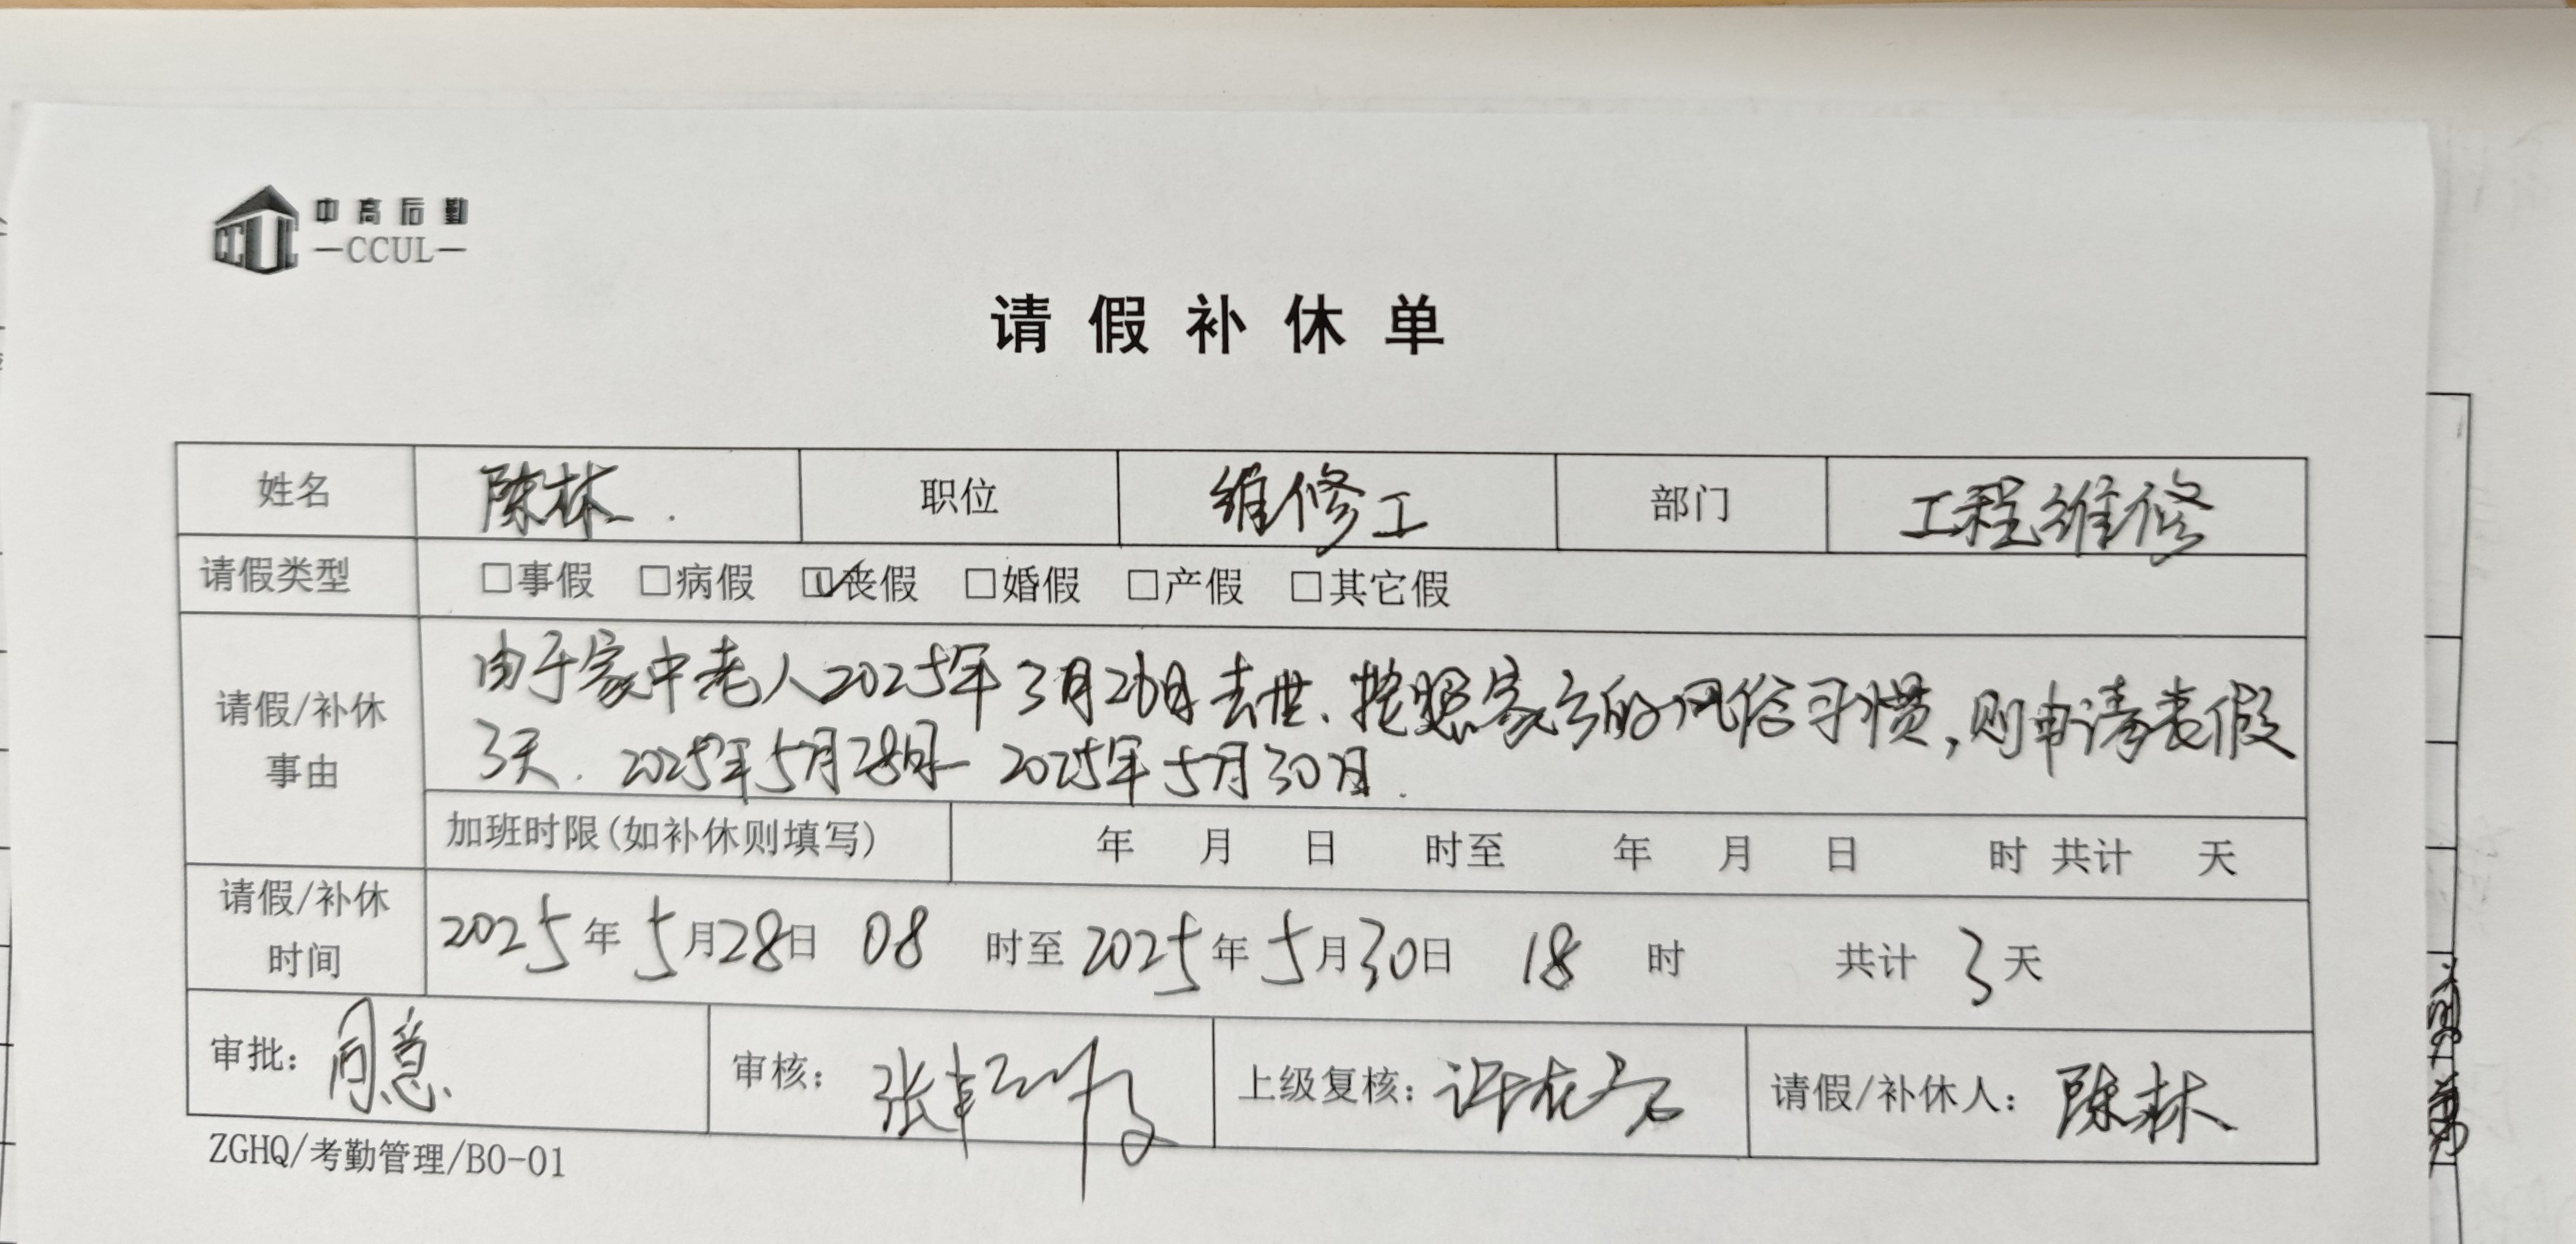 中高后勤
CCUL
—CCUL—
请假补休单
姓名 陈林 职位 维修工 部门 工程维修
请假类型 □事假 □病假 ☑丧假 □婚假 □产假 □其它假
请假/补休事由
由于家中老人2025年3月26日去世、按照家乡的风俗习惯,则申请丧假
3天. 2025年5月28日— 2025年5月30日.
加班时限(如补休则填写) 年 月 日 时至 年 月 日 时 共计 天
请假/补休时间 2025年5月28日 08 时至2025年5月30日 18 时 共计 3天
审批: 同意. 审核: 张 上级复核: 许 请假/补休人: 陈林
ZGHQ/考勤管理/B0-01